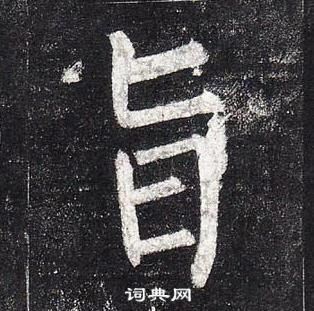 旨
词典网